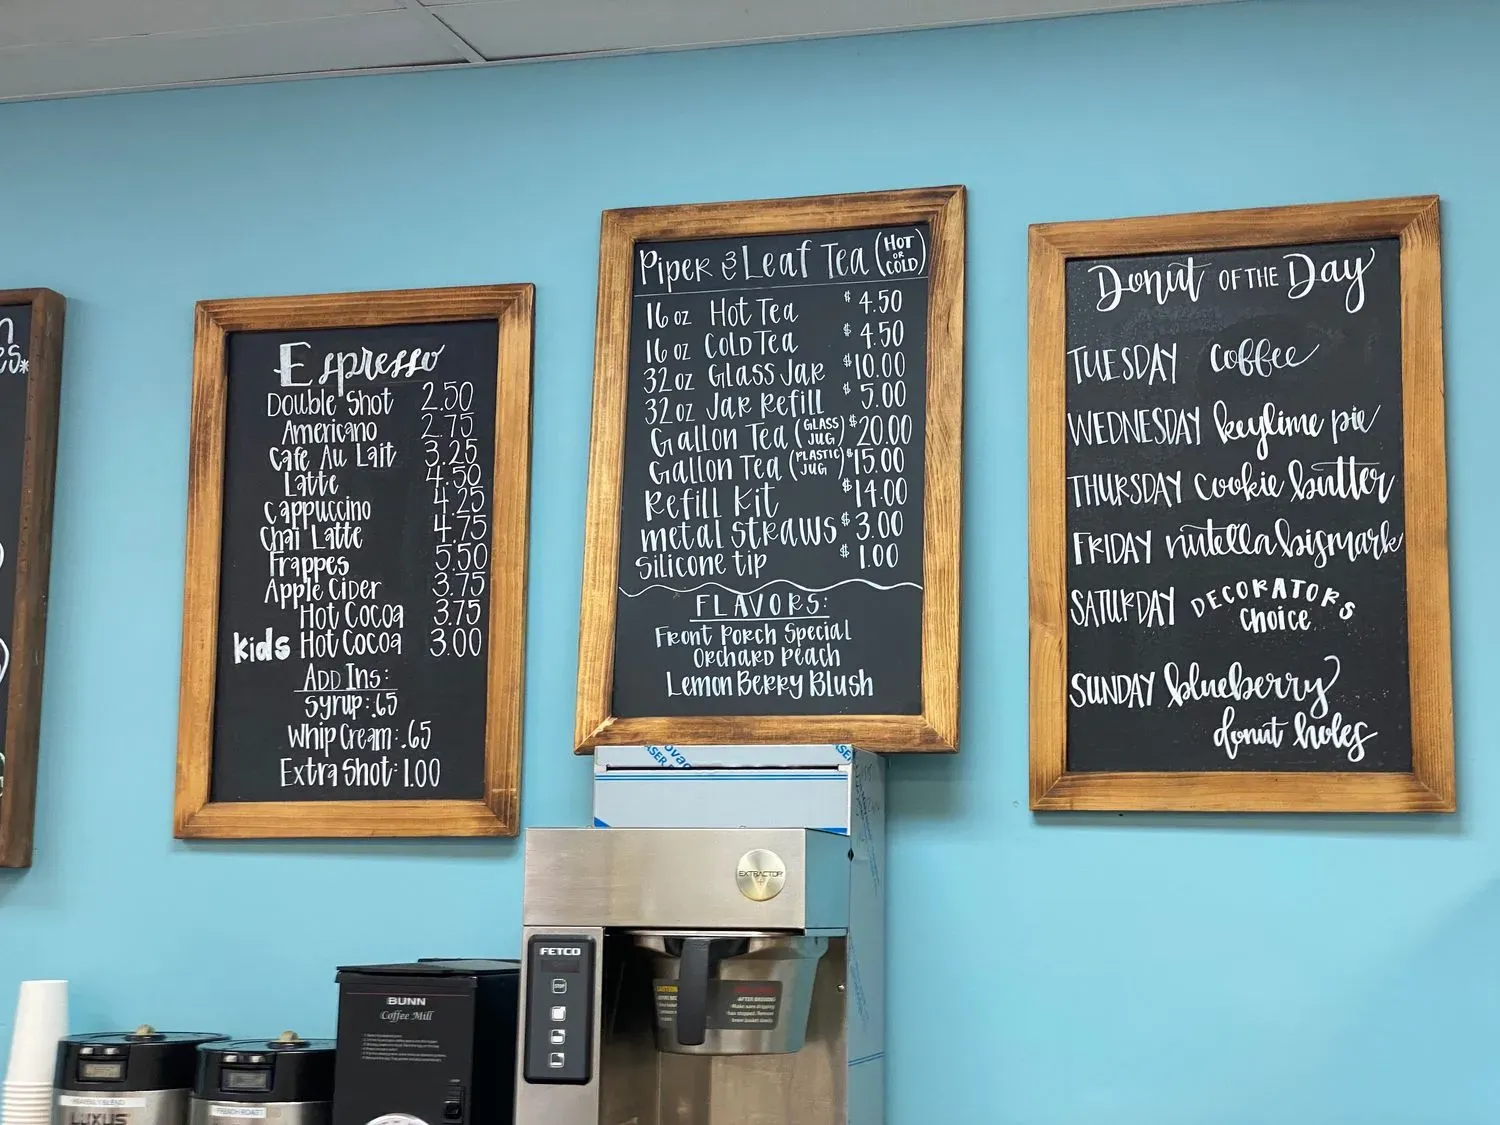 Espresso
Double Shot 2.50
Americano 2.75
Cafe Au Lait 3.25
Latte 4.50
Cappuccino 4.25
Chai Latte 4.75
Frappes 5.50
Apple Cider 3.75
Hot Cocoa 3.75
kids Hot Cocoa 3.00
Add Ins:
Syrup: .65
Whip Cream: .65
Extra Shot: 1.00
Piper & Leaf Tea (HOT OR COLD)
16 oz Hot Tea $4.50
16 oz Cold Tea $4.50
32 oz Glass Jar $10.00
32 oz Jar Refill $5.00
Gallon Tea (GLASS JUG) $20.00
Gallon Tea (PLASTIC JUG) $15.00
Refill Kit $14.00
metal straws $3.00
Silicone tip $1.00
FLAVORS:
Front Porch Special
Orchard Peach
Lemon Berry Blush
Donut OF THE Day
TUESDAY coffee
WEDNESDAY keylime pie
THURSDAY cookie butter
FRIDAY nutella bismark
SATURDAY DECORATORS
Choice
SUNDAY blueberry
donut holes
EXTRACTOR
FETCO
STOP
BUNN
Coffee Mill
AFTER BREWING
Make sure dripping
has stopped. Remove
brew basket slowly
LUXUS
FRENCH ROAST